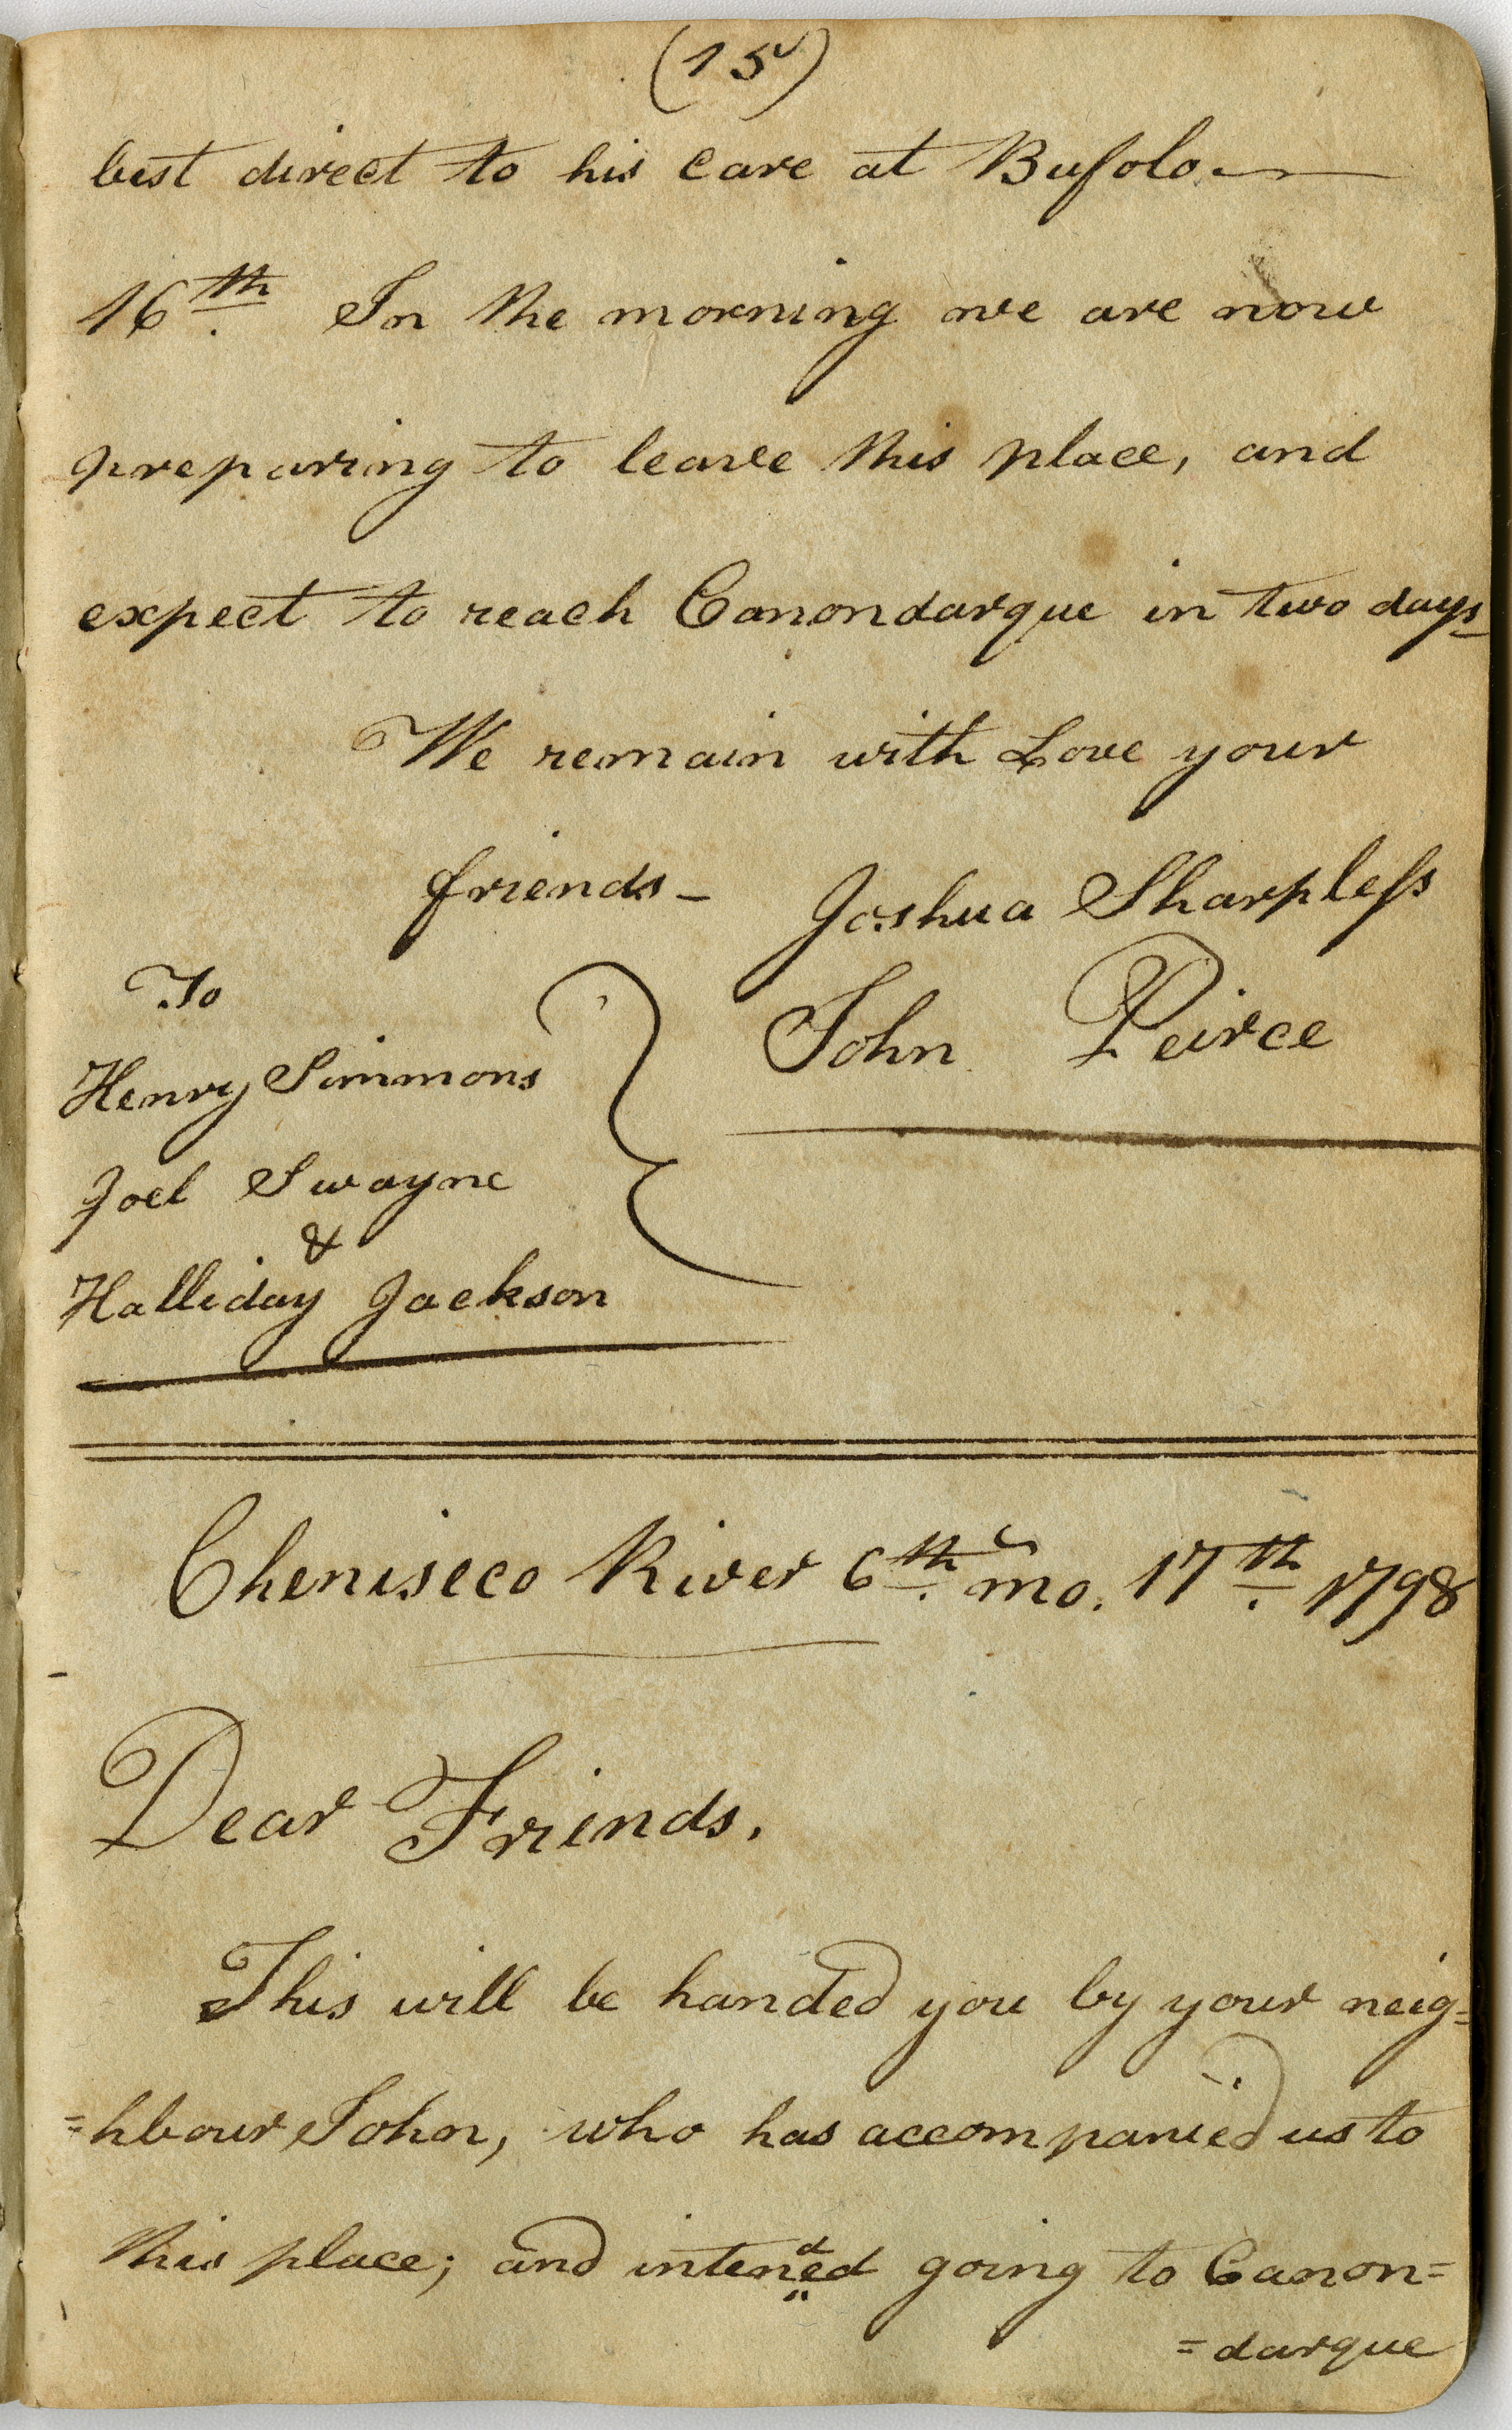 (15)
best direct to his care at Bufolo.—
16th. In the morning we are now
preparing to leave this place, and
expect to reach Canondarque in two days_
We remain with Love your
friends_ Joshua Sharpleſs
To John Peirce
Henry Simmons
Joel Swayne
&
Halliday Jackson
Cheniseco River 6th. mo. 17th. 1798
Dear Friends.
This will be handed you by your neig=
=hbour John, who has accompanied us to
d
this place; and intened going to Canon=
=darque